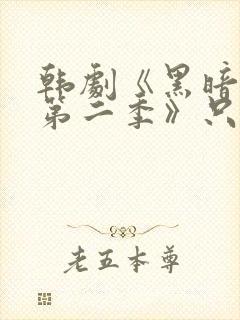 韩劇《黑暗
第二季》只
老五本尊